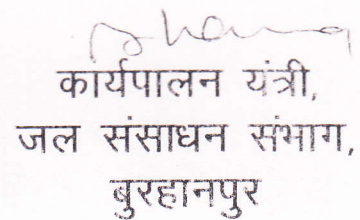 कार्यपालन यंत्री,
जल संसाधन संभाग,
बुरहानपुर